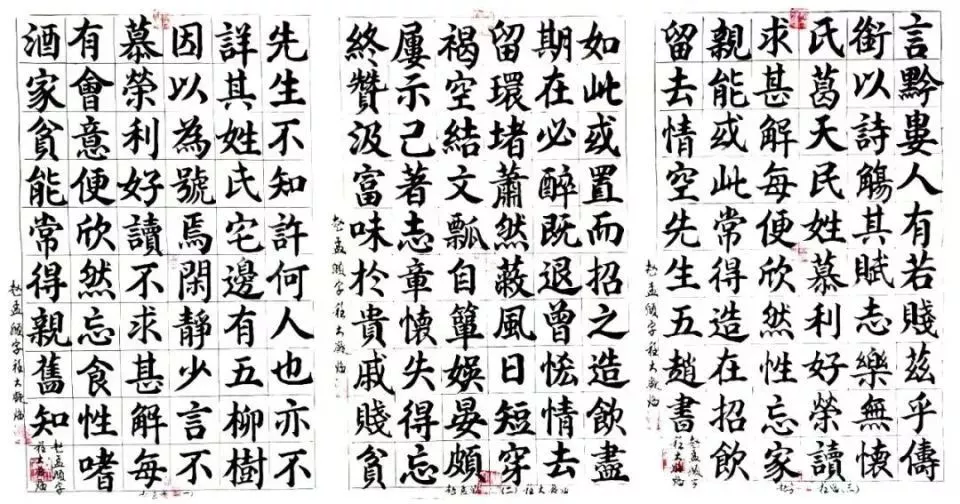 先生不知許何人也亦不
詳其姓氏宅邊有五柳樹
因以為號焉閑靜少言不
慕榮利好讀不求甚解每
有會意便欣然忘食性嗜
酒家貧能常得親舊知
赵孟頫字
赵孟頫字
如此或置而招之造飲盡
期在必醉既退曾恡情去
留環堵蕭然蔽風日短穿
褐空結文瓢自簞娛晏頗
屢示己著志章懷失得忘
終贊汲富味於貴戚賤貧
赵孟頫字
言黔婁人有若賤茲乎儔
銜以詩觴其賦志樂無懷
氏葛天民姓慕利好榮讀
求甚解每便欣然性忘家
親能或此常得造在招飲
留去情空先生五趙書
赵孟頫字